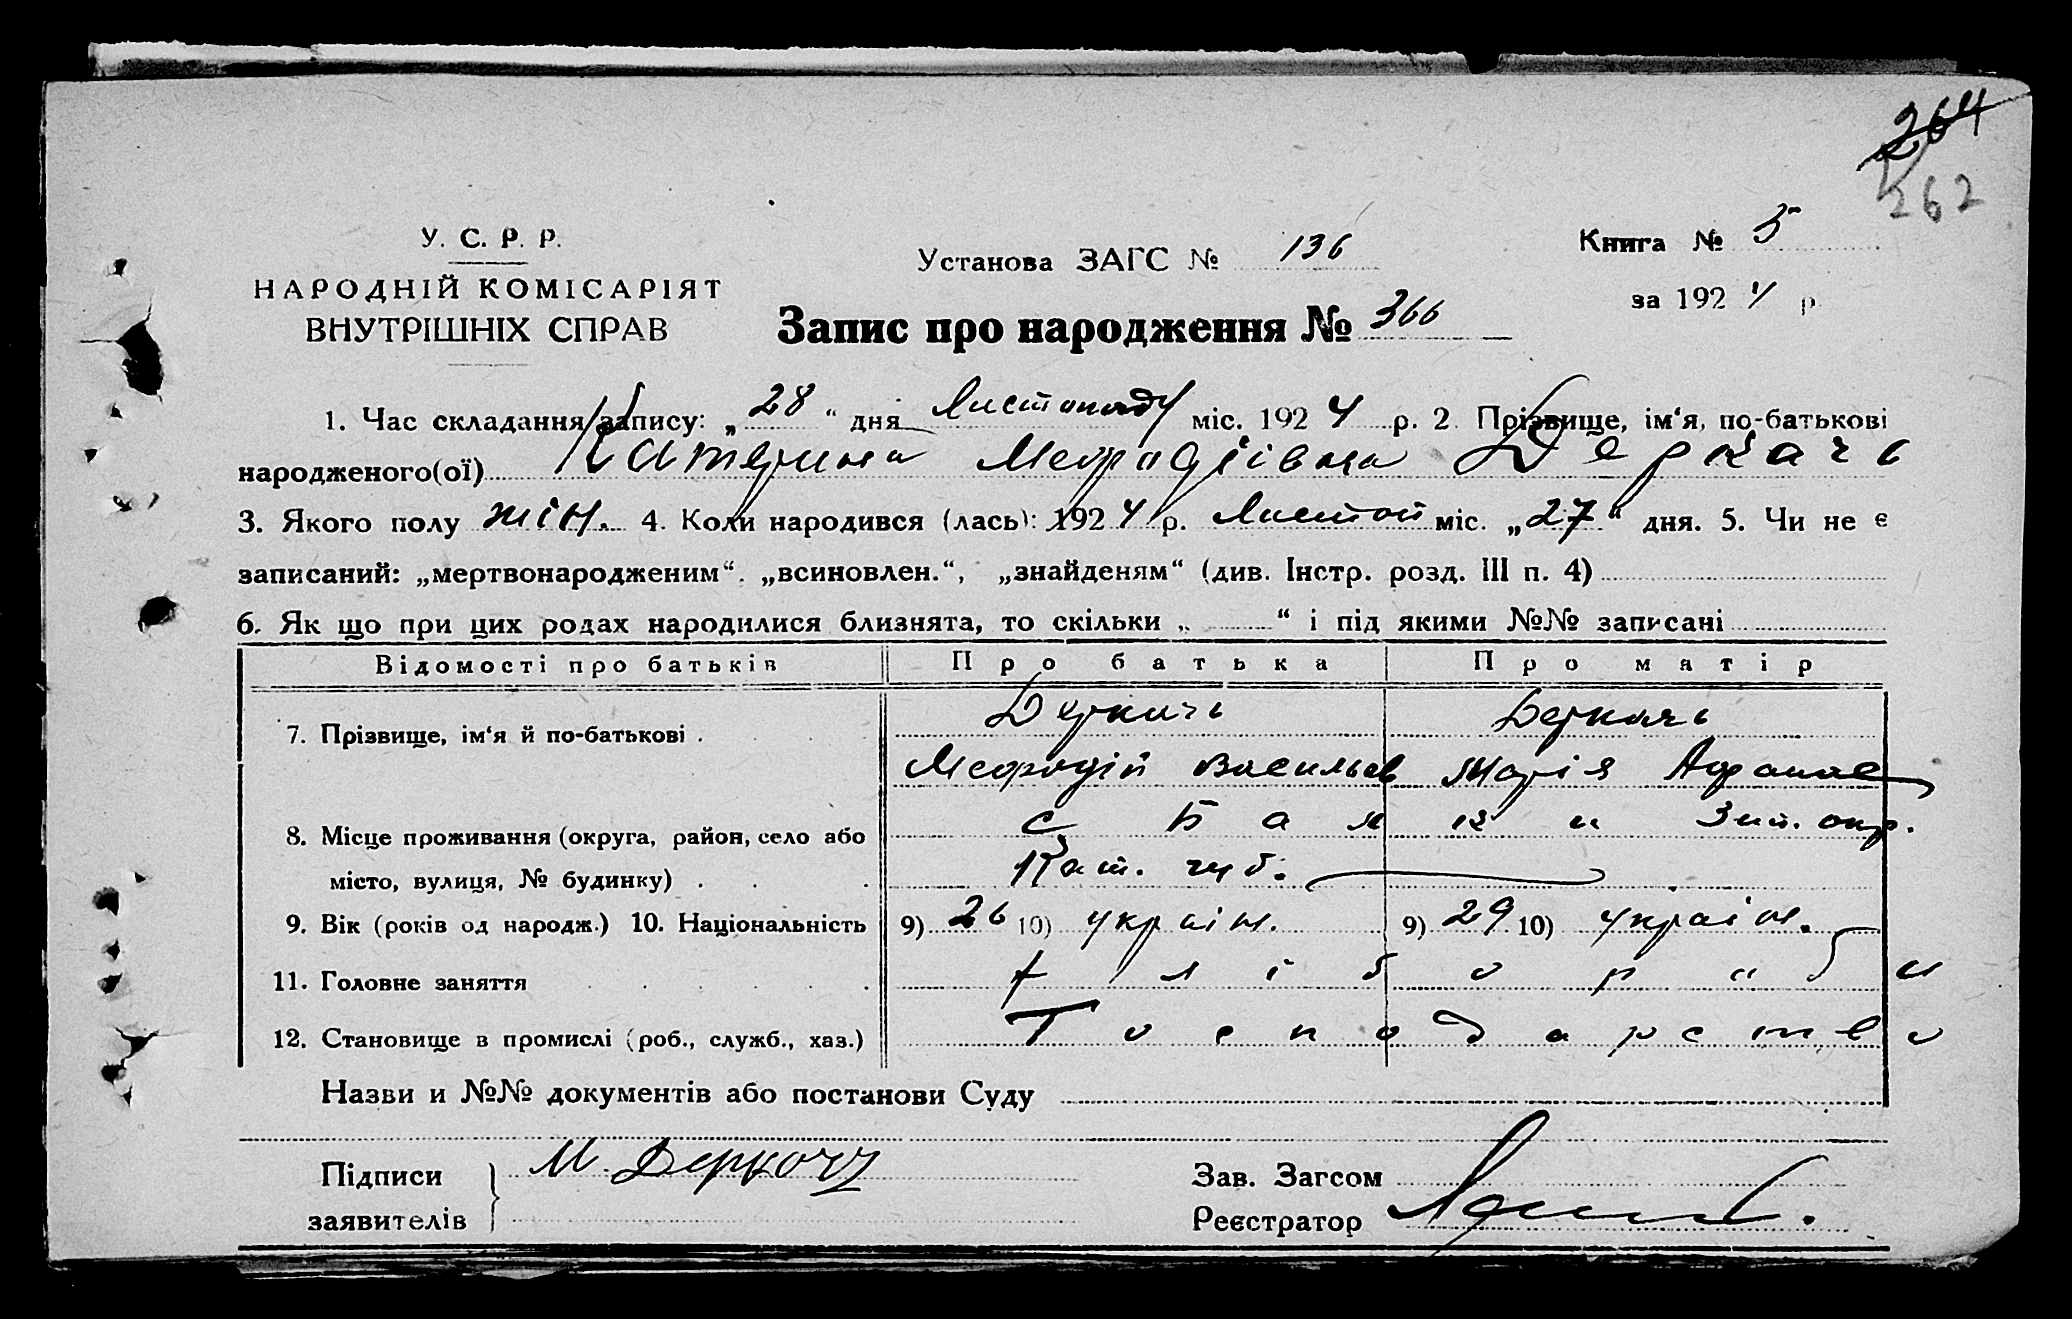 264
262
У. С. Р. Р.
НАРОДНІЙ КОМІСАРІЯТ
ВНУТРІШНІХ СПРАВ
Установа ЗАГС № 136
Книга № 5
за 1924 р
Запис про народження № 366
1. Час складання запису: „28“ дня Листопаду міс. 1924 р. 2. Прізвище, ім‘я, по-батькові
народженого(ої) Катерина Мефодіівна Деркачь
3. Якого полу жін. 4. Коли народився (лась): 1924 р. Листоп міс. „27“ дня. 5. Чи не є
записаний: „мертвонародженим“, „всиновлен.“, „знайденям“ (див. Інстр. розд. III п. 4)
6. Як що при цих родах народилися близнята, то скільки „ “ і під якими №№ записані
Відомості про батьків Про батька Про матір
7. Прізвище, ім‘я й по-батькові . Деркачь Деркачь
Мефодій Васильев Марія Афанас
8. Місце проживання (округа, район, село або с Балки Зап. окр.
місто, вулиця, № будинку) . Кат. губ.
9. Вік (років од народж.) 10. Національність 9) 26 10) україн. 9) 29 10) україн.
11. Головне заняття хлібороби
12. Становище в промислі (роб., служб., хаз.) Господарство
Назви и №№ документів або постанови Суду
Підписи М. Деркач
заявителів
Зав. Загсом
Реєстратор